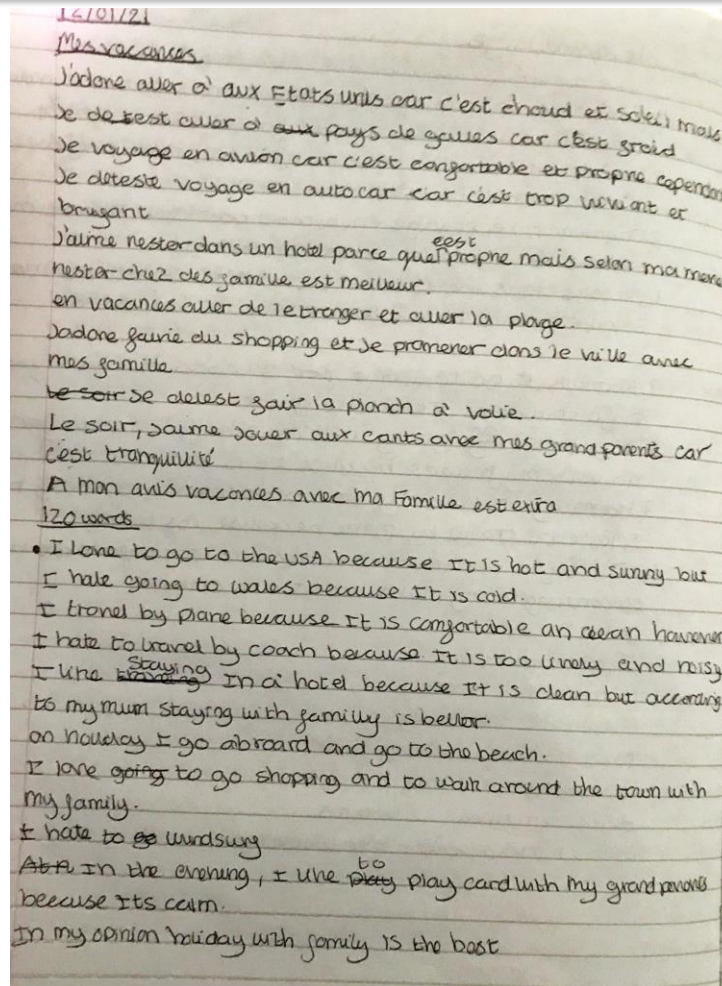 12/01/21
Mes vacances
J'adore aller à aux Etats unis car c'est chaud et soleil mais
Je detest aller à aux pays de galles car c'est froid
Je voyage en avion car c'est confortable et propre cependan
Je deteste voyage en autocar car c'est trop vivant et
bruyant
J'aime rester dans un hotel parce que c'est propre mais selon ma mere
rester chez des famille est meilleur.
en vacances aller de letranger et aller la plage.
Jadore faire du shopping et se promener dans le ville avec
mes famille
Le soir Je detest fair la planch à volie.
Le soir, Jaime Jouer aux carts avec mes grand parents car
c'est tranquilité
A mon avis vacances avec ma Famille est extra
120 words
• I Love to go to the USA because It is hot and sunny but
I hate going to wales because It is cold.
I travel by plane because It is comfortable an clean however
I hate to travel by coach because It is too lively and noisy
I like staying In a hotel because It is clean but according
to my mum staying with familly is better.
on holiday I go abroard and go to the beach.
I love going to go shopping and to walk around the town with
my family.
I hate to go windsurg
In the evening, I like to play play card with my grand parents
because Its calm.
In my opinion holiday with family is the best